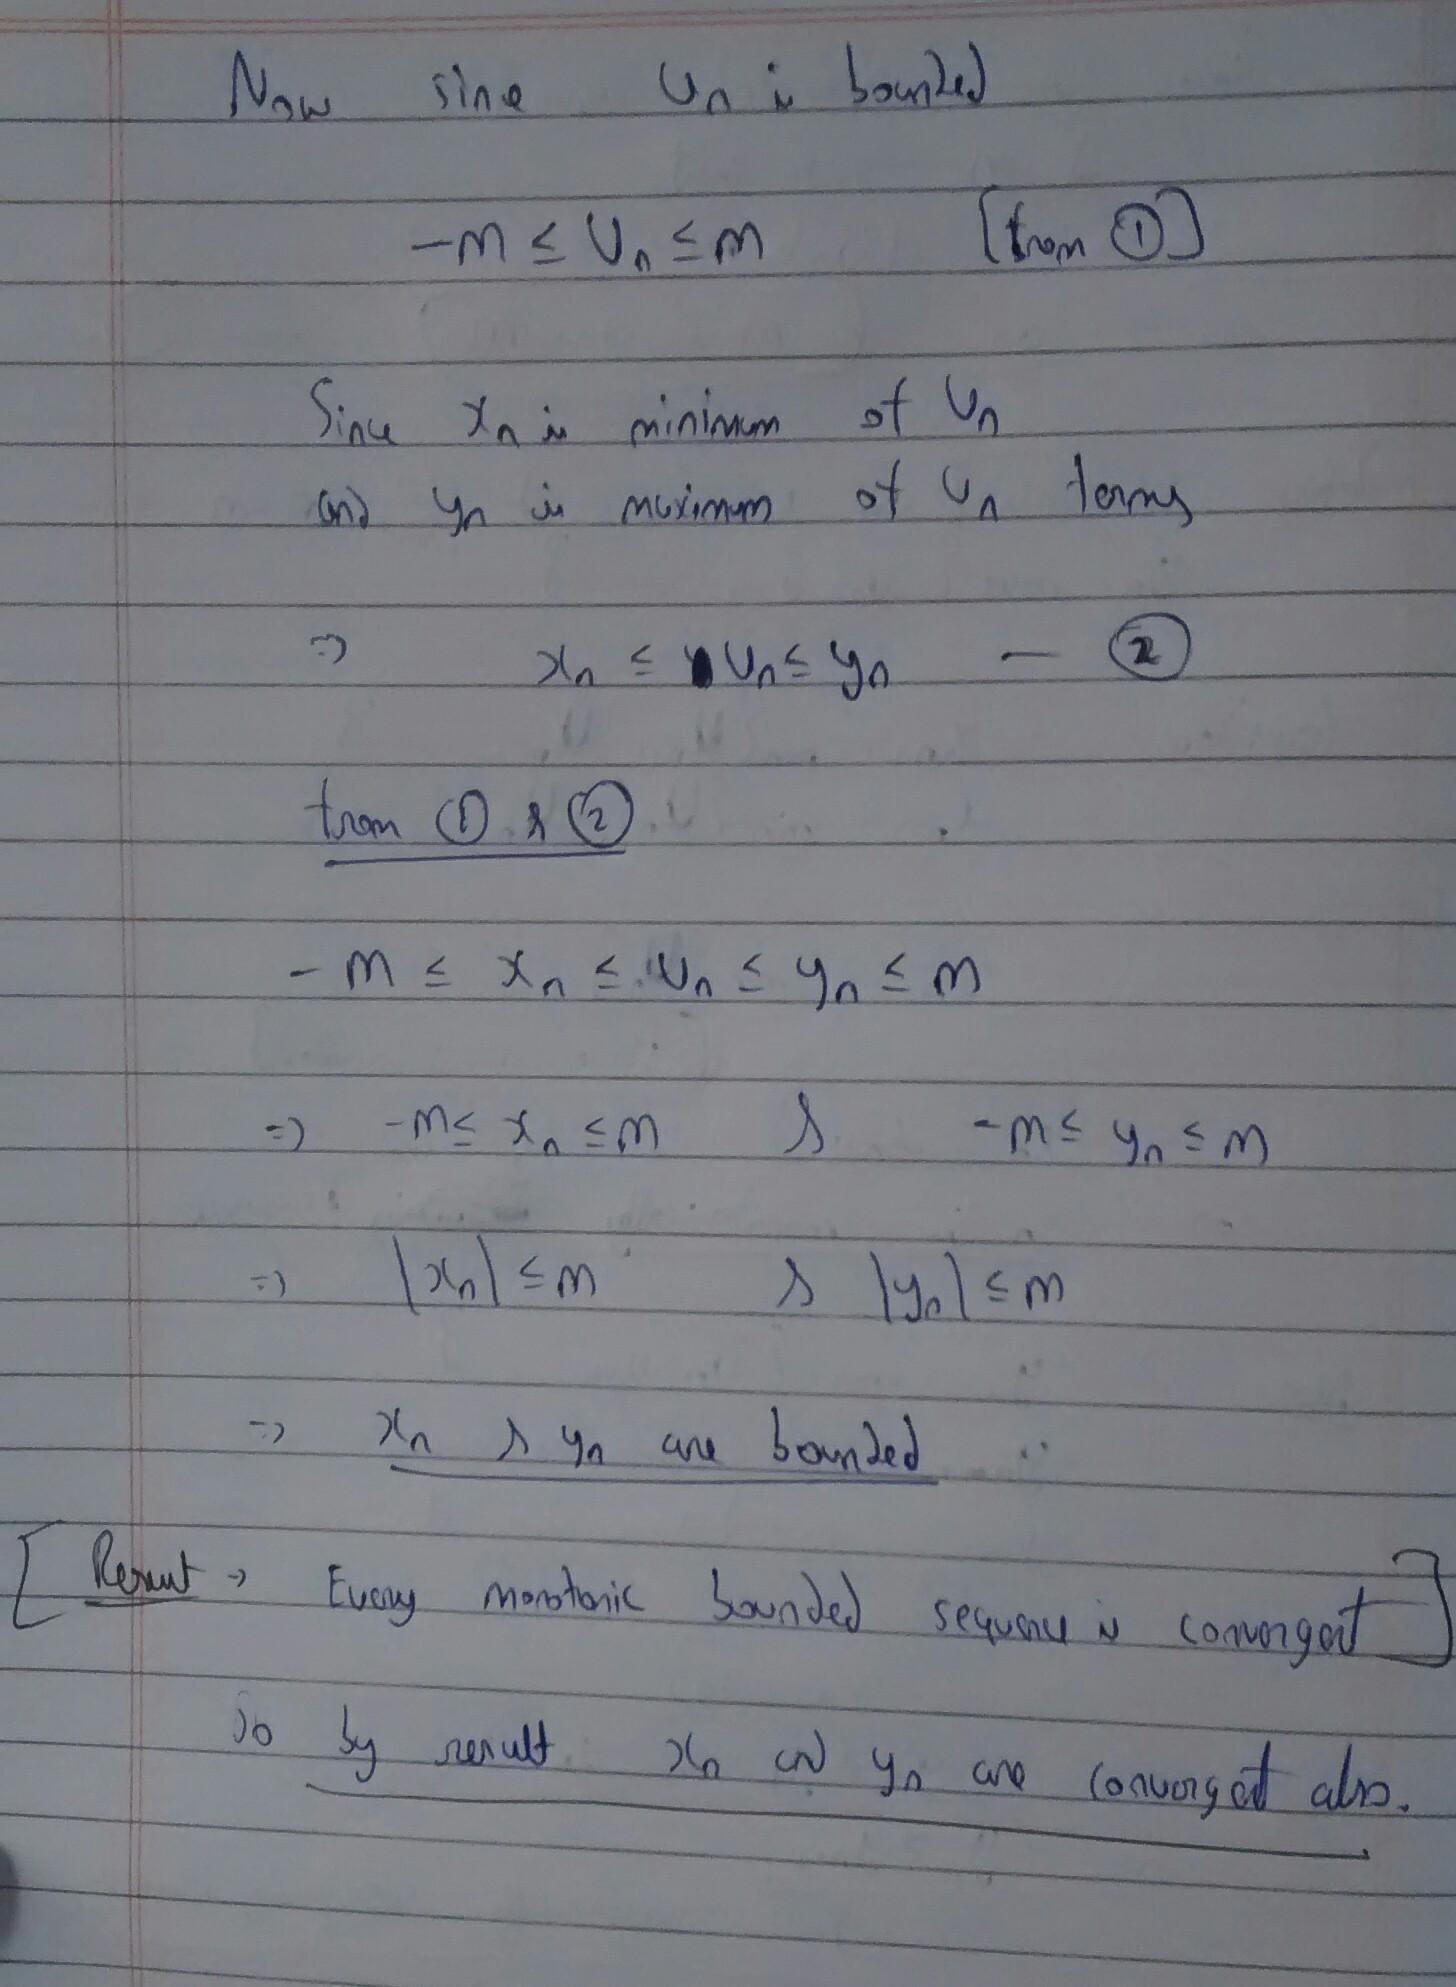 Now since Un is bounded
-m ≤ Un ≤ m [from ①]
Since xn is minimum of Un
and yn is maximum of Un terms
=> xn ≤ Un ≤ yn - ②
from ① & ②
- m ≤ xn ≤ Un ≤ yn ≤ m
=> -m ≤ xn ≤ m & -m ≤ yn ≤ m
=> |xn| ≤ m & |yn| ≤ m
=> xn & yn are bounded
[Result → Every monotonic bounded sequence is convergent]
So by result xn and yn are convergent also.